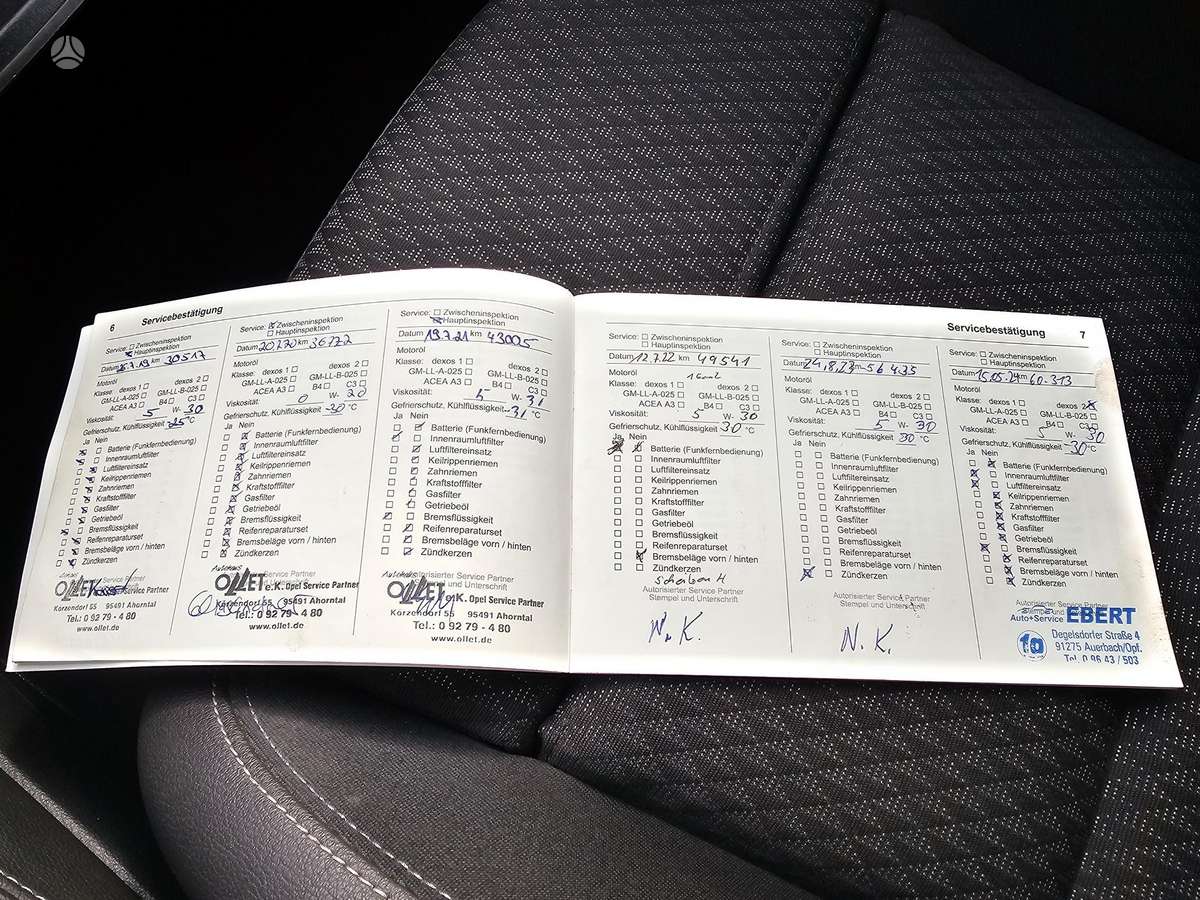 6 Servicebestätigung
Service: Zwischeninspektion
Hauptinspektion
Datum 25.7.19 km 30517
Motoröl
Klasse: dexos 1 dexos 2
GM-LL-A-025 GM-LL-B-025
ACEA A3 B4 C3
Viskosität: 5 W- 30
Gefrierschutz, Kühlflüssigkeit -25 °C
Ja Nein
Batterie (Funkfernbedienung)
Innenraumluftfilter
Luftfiltereinsatz
Keilrippenriemen
Zahnriemen
Kraftstofffilter
Gasfilter
Getriebeöl
Bremsflüssigkeit
Reifenreparaturset
Bremsbeläge vorn / hinten
Zündkerzen
Autohaus
OLLET
Service Partner
Körzendorf 55 95491 Ahorntal
Tel.: 0 92 79 - 4 80
www.ollet.de
Service: Zwischeninspektion
Hauptinspektion
Datum 20.7.20 km 36772
Motoröl
Klasse: dexos 1 dexos 2
GM-LL-A-025 GM-LL-B-025
ACEA A3 B4 C3
Viskosität: 0 W- 20
Gefrierschutz, Kühlflüssigkeit -30 °C
Ja Nein
Batterie (Funkfernbedienung)
Innenraumluftfilter
Luftfiltereinsatz
Keilrippenriemen
Zahnriemen
Kraftstofffilter
Gasfilter
Getriebeöl
Bremsflüssigkeit
Reifenreparaturset
Bremsbeläge vorn / hinten
Zündkerzen
Autohaus
OLLET e.K. Opel Service Partner
Körzendorf 55 95491 Ahorntal
Tel.: 0 92 79 - 4 80
www.ollet.de
Service: Zwischeninspektion
Hauptinspektion
Datum 19.7.21 km 43005
Motoröl
Klasse: dexos 1 dexos 2
GM-LL-A-025 GM-LL-B-025
ACEA A3 B4 C3
Viskosität: 5 W- 31
Gefrierschutz, Kühlflüssigkeit -31 °C
Ja Nein
Batterie (Funkfernbedienung)
Innenraumluftfilter
Luftfiltereinsatz
Keilrippenriemen
Zahnriemen
Kraftstofffilter
Gasfilter
Getriebeöl
Bremsflüssigkeit
Reifenreparaturset
Bremsbeläge vorn / hinten
Zündkerzen
Autorisierter Service Partner
Stempel und Unterschrift
Autohaus
OLLET e.K. Opel Service Partner
Körzendorf 55 95491 Ahorntal
Tel.: 0 92 79 - 4 80
www.ollet.de
Servicebestätigung 7
Service: Zwischeninspektion
Hauptinspektion
Datum 12.7.22 km 49541
Motoröl
Klasse: dexos 1 dexos 2
GM-LL-A-025 GM-LL-B-025
ACEA A3 B4 C3
Viskosität: 5 W- 30
Gefrierschutz, Kühlflüssigkeit 30 °C
Ja Nein
Batterie (Funkfernbedienung)
Innenraumluftfilter
Luftfiltereinsatz
Keilrippenriemen
Zahnriemen
Kraftstofffilter
Gasfilter
Getriebeöl
Bremsflüssigkeit
Reifenreparaturset
Bremsbeläge vorn / hinten
Zündkerzen
Scheiben H
Autorisierter Service Partner
Stempel und Unterschrift
N. K.
Service: Zwischeninspektion
Hauptinspektion
Datum 24.8.23 km 56 435
Motoröl
Klasse: dexos 1 dexos 2
GM-LL-A-025 GM-LL-B-025
ACEA A3 B4 C3
Viskosität: 5 W- 30
Gefrierschutz, Kühlflüssigkeit 30 °C
Ja Nein
Batterie (Funkfernbedienung)
Innenraumluftfilter
Luftfiltereinsatz
Keilrippenriemen
Zahnriemen
Kraftstofffilter
Gasfilter
Getriebeöl
Bremsflüssigkeit
Reifenreparaturset
Bremsbeläge vorn / hinten
Zündkerzen
Autorisierter Service Partner
Stempel und Unterschrift
N. K.
Service: Zwischeninspektion
Hauptinspektion
Datum 15.05.24 km 60.313
Motoröl
Klasse: dexos 1 dexos 2
GM-LL-A-025 GM-LL-B-025
ACEA A3 B4 C3
Viskosität: 5 W- 30
Gefrierschutz, Kühlflüssigkeit -30 °C
Ja Nein
Batterie (Funkfernbedienung)
Innenraumluftfilter
Luftfiltereinsatz
Keilrippenriemen
Zahnriemen
Kraftstofffilter
Gasfilter
Getriebeöl
Bremsflüssigkeit
Reifenreparaturset
Bremsbeläge vorn / hinten
Zündkerzen
Autorisierter Service Partner
Auto+Service EBERT
Degelsdorfer Straße 4
91275 Auerbach/Opf.
Tel. 0 96 43 / 503